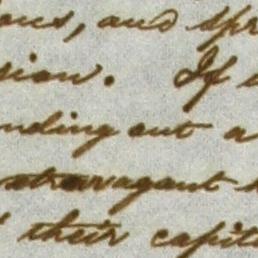 ous, and spr
sion. If
nding out a
extravagant
their capit